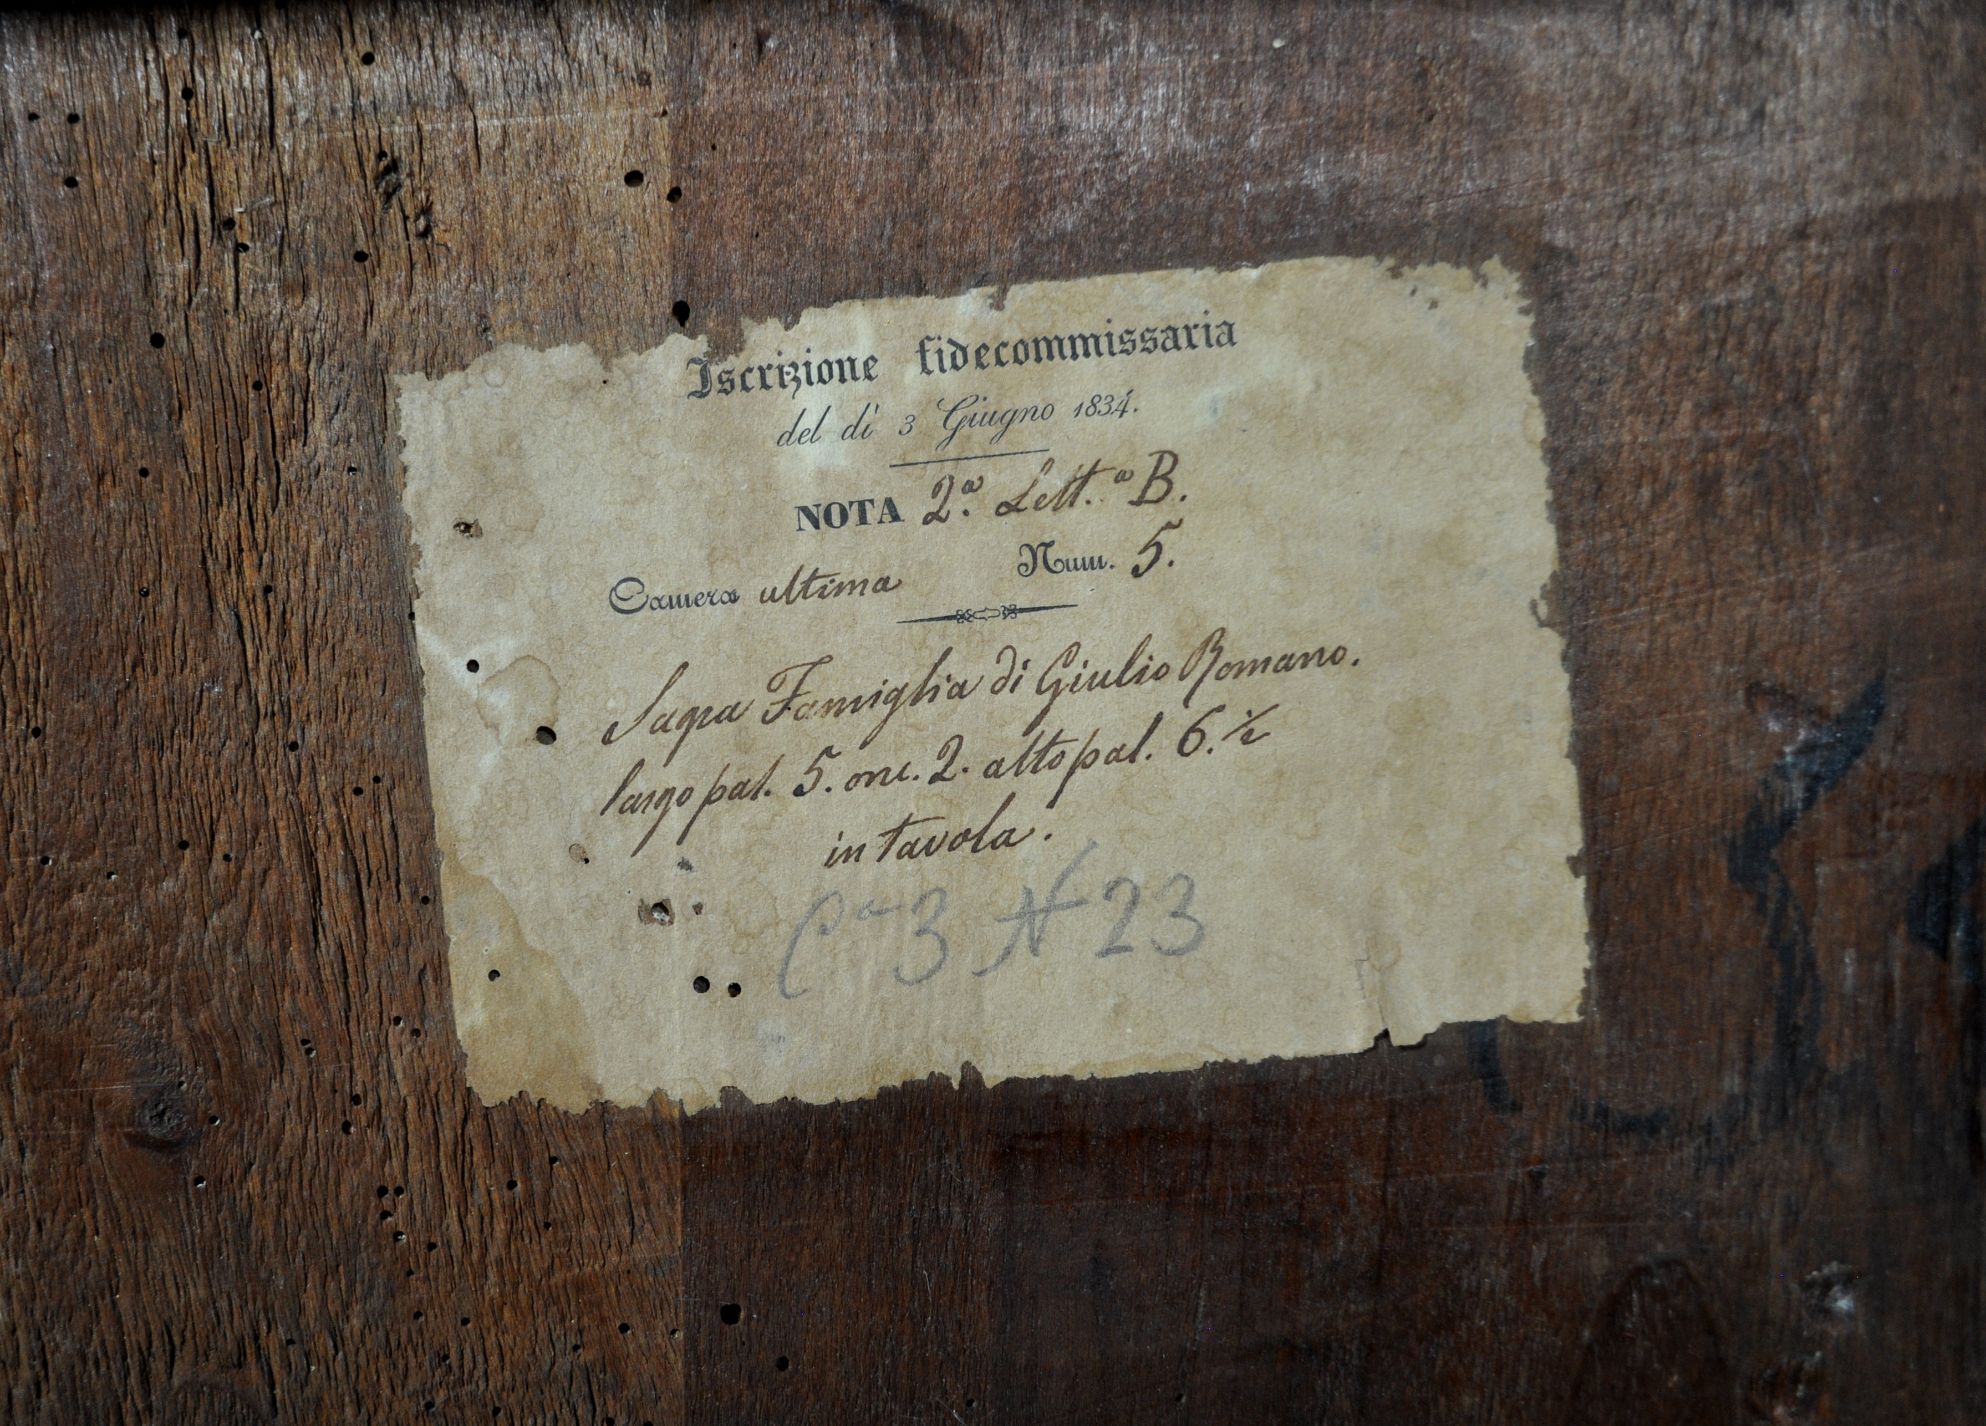 Iscrizione fidecommissaria
del dì 3 Giugno 1834.
NOTA 2.ª Lett.ª B.
Camera ultima Num. 5.
Sagra Famiglia di Giulio Romano.
largo pal. 5. onc. 2. alto pal. 6. ½
in tavola.
Cª 3 N 23